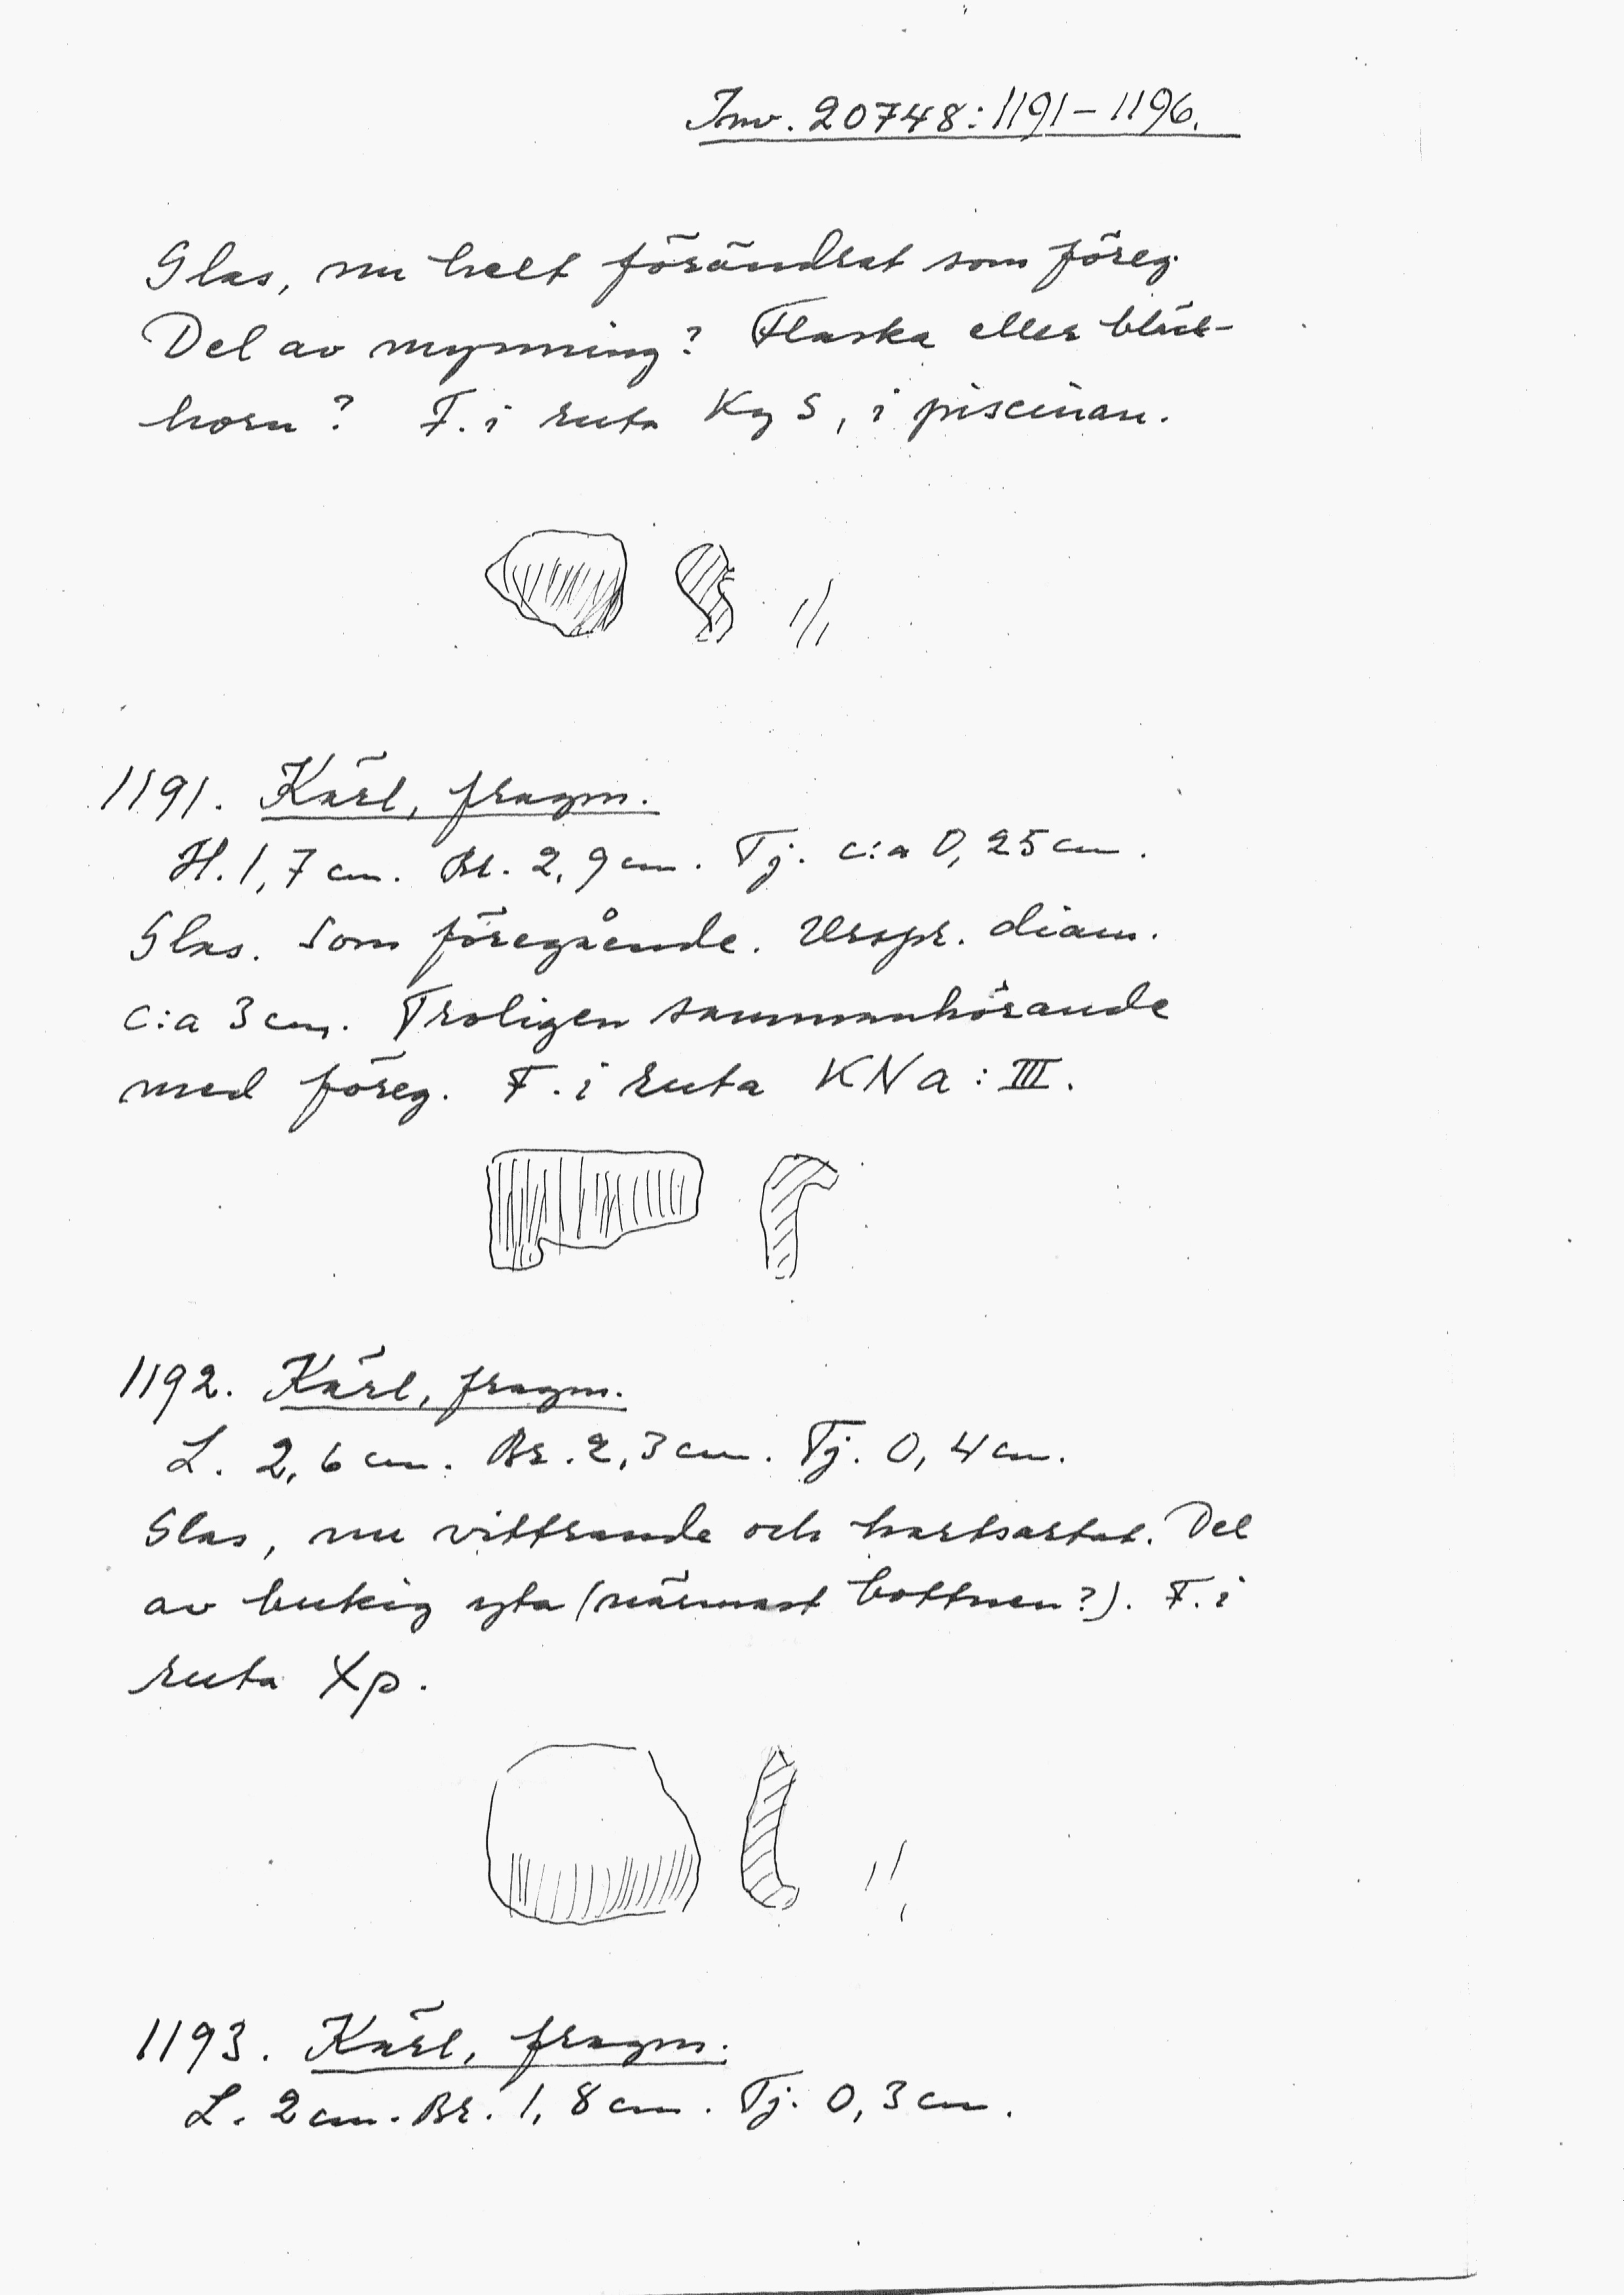 Inv. 20748:1191-1196.
Glas, nu helt förändrat som föreg.
Del av mynning? Flaska eller bläck-
horn? F. i ruta Ky S, i piscinan.
1191. Kärl, fragm.
H. 1,7 cm. Br. 2,9 cm. Tj. c:a 0,25 cm.
Glas. Som föregående. Urspr. diam.
c:a 3 cm. Troligen sammanhörande
med föreg. F. i ruta KNa: III.
1192. Kärl, fragm.
L. 2,6 cm. Br. 2,3 cm. Tj. 0,4 cm.
Glas, nu vittrande och hartsartat. Del
av bukig yta (närmast bottnen?). F. i
ruta Xp.
1193. Kärl, fragm.
L. 2 cm. Br. 1,8 cm. Tj. 0,3 cm.